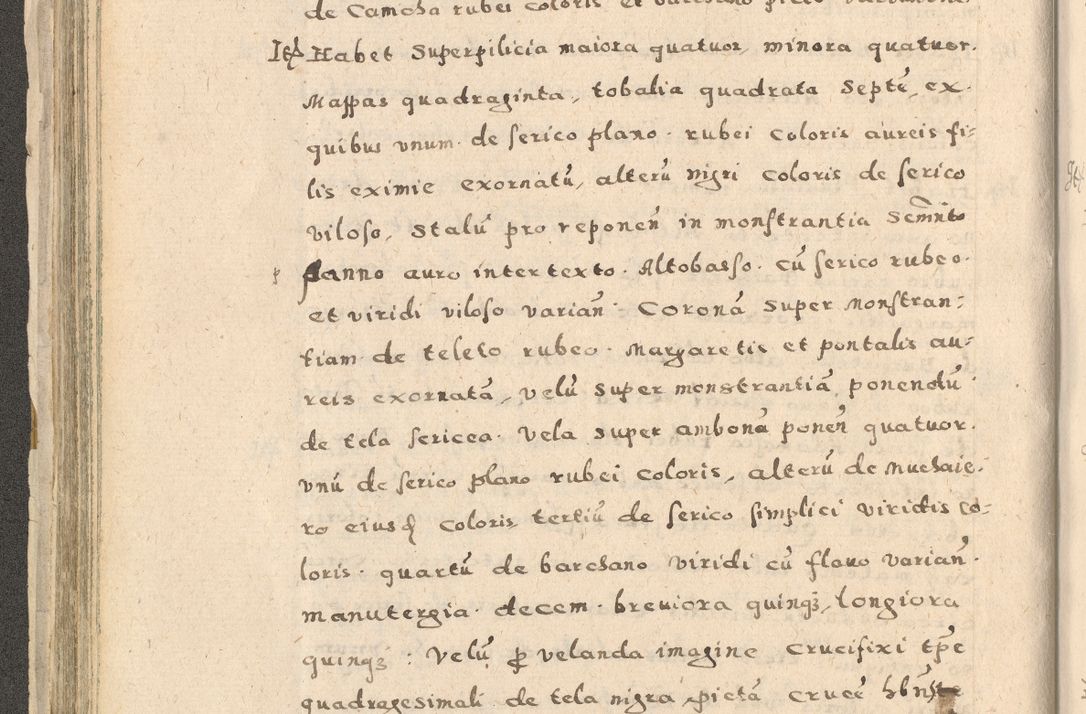 de Camcha rubei coloris et barchano picto
Itē Habet Superpilicia maiora quatuor, minora quatuor.
Mappas quadraginta, tobalia quadrata Septē, ex.
quibus vnum de serico plano rubei coloris aureis fi=
lis eximie exornatū, alterū nigri coloris de serico
viloso, Stalū pro reponeñ in monstrantia Scm̃nto
panno auro intertexto. Altobasso. cū serico rubeo.
et viridi viloso variañ. Coronā super Monstran=
tiam de teleto rubeo. Margaretis et pontalis au=
reis exornatā, velū super monstrantiā ponendū
de tela sericea. Vela super ambonā poneñ quatuor.
vnū de serico plano rubei coloris, alterū de Muchaie=
ro eiusq̃ coloris, tertiū de serico simplici viridis co=
loris. quartū de barchano viridi cū flauo variañ.
manutergia. decem. breuiora quinqꝫ, longiora
quinqꝫ: Velū ꝓ velanda imagine Crucifixi tp̃e
quadragesimali de tela nigra, pictā crucē hbñte